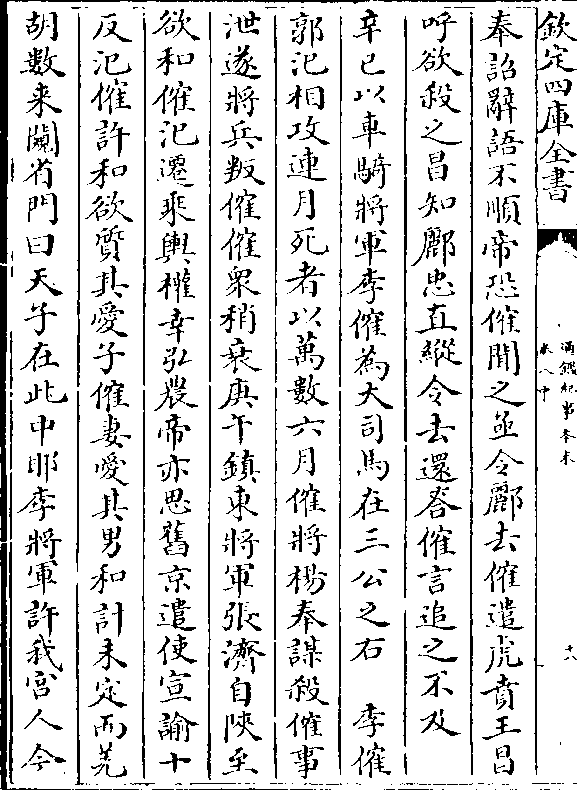 欽定四庫全書
通鑑紀事本末
卷八中
十八
奉詔辭語不順帝恐傕聞之亟令酈去傕遣虎賁王昌
呼欲殺之昌知酈忠直縱令去還答傕言追之不及
辛巳以車騎將軍李傕為大司馬在三公之右 李傕
郭汜相攻連月死者以萬數六月傕將楊奉謀殺傕事
泄遂將兵叛傕傕衆稍衰庚午鎮東將軍張濟自陝至
欲和傕汜遷乘輿權幸弘農帝亦思舊京遣使宣諭十
反汜傕許和欲質其愛子傕妻愛其男和計未定而羌
胡數来闚省門曰天子在此中耶李將軍許我宮人今